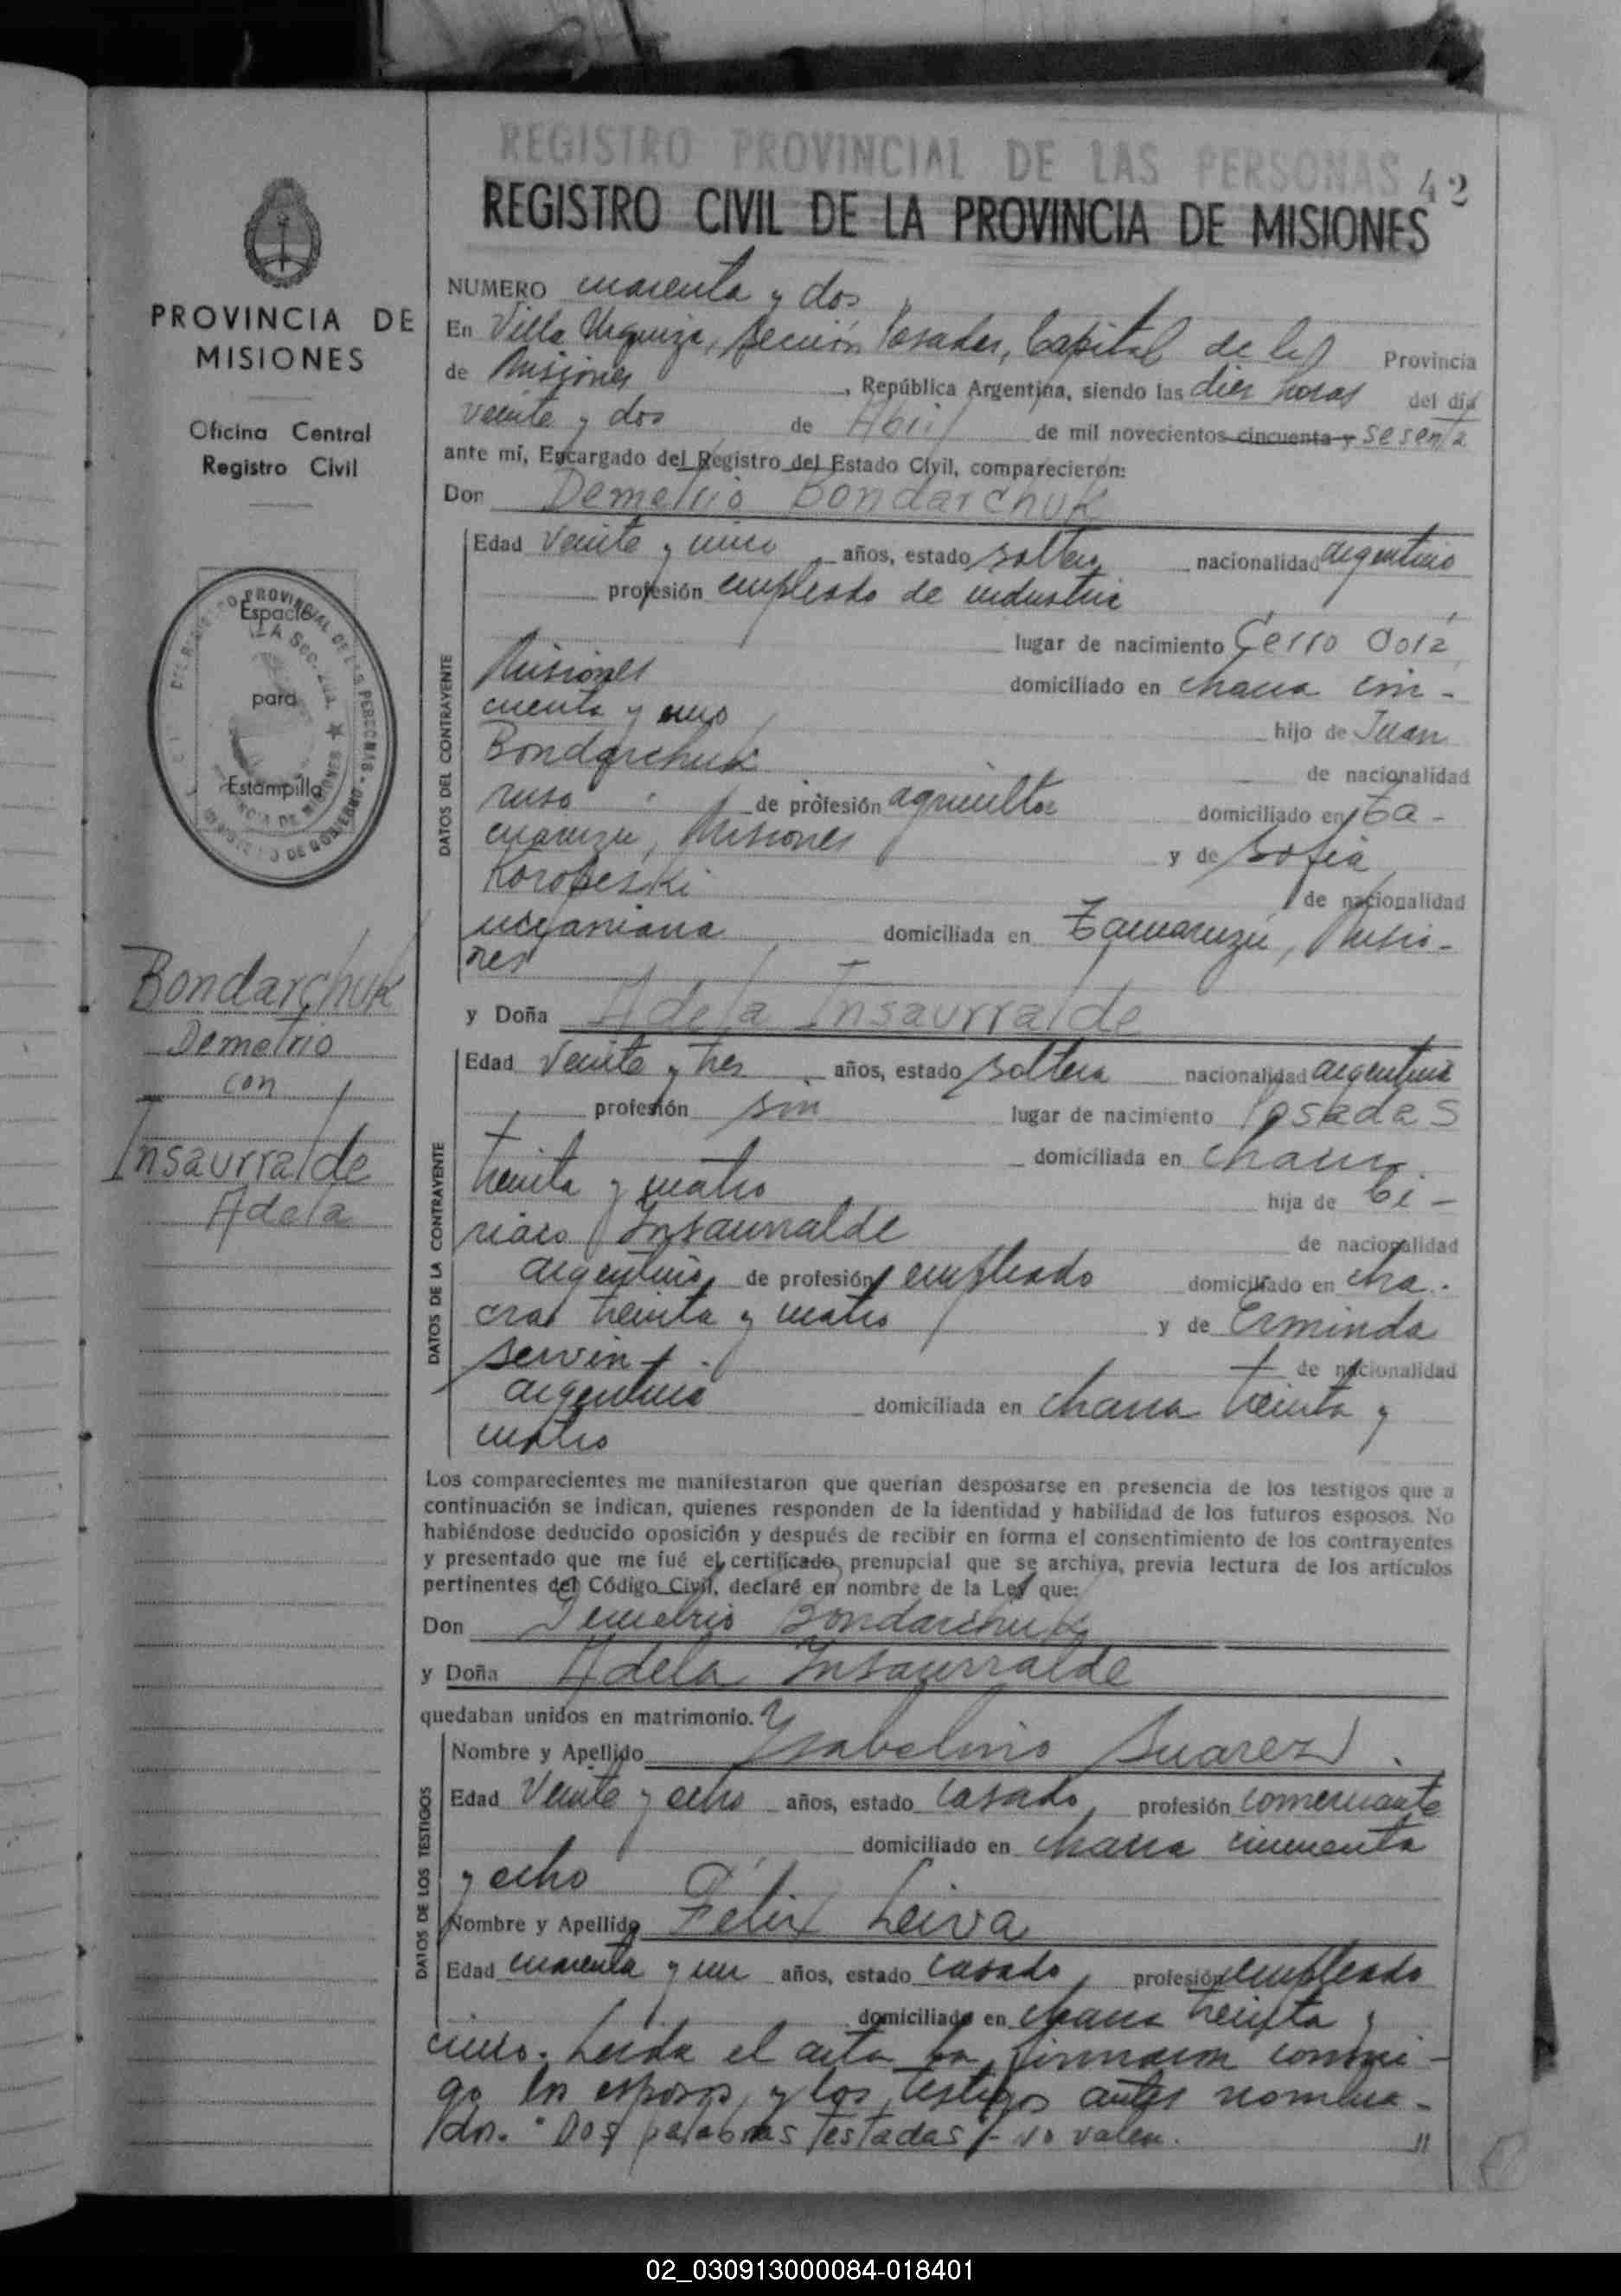 REGISTRO PROVINCIAL DE LAS PERSONAS
42
REGISTRO CIVIL DE LA PROVINCIA DE MISIONES
PROVINCIA DE
MISIONES
Oficina Central
Registro Civil
Espacio
para
Estampilla
Bondarchuk
Demetrio
con
Insaurralde
Adela
NUMERO cuarenta y dos
En Villa Urquiza, Sección Posadas, Capital de la Provincia
de Misiones, República Argentina, siendo las diez horas del día
veinte y dos de Abril de mil novecientos cincuenta y sesenta
ante mí, Encargado del Registro del Estado Civil, comparecieron:
Don Demetrio Bondarchuk
DATOS DEL CONTRAYENTE
Edad veinte y años, estado soltero nacionalidad argentino
profesión empleado de industria
lugar de nacimiento Cerro Corá
Misiones domiciliado en chacra cin-
cuenta y uno hijo de Juan
Bondarchuk de nacionalidad
ruso de profesión agricultor domiciliado en
Misiones y de Sofia
de nacionalidad
ucraniana domiciliada en Misio-
nes
y Doña Adela Insaurralde
DATOS DE LA CONTRAYENTE
Edad veinte y tres años, estado soltera nacionalidad argentina
profesión sin lugar de nacimiento Posadas
domiciliada en chacra
treinta y cuatro hija de Ci-
riaco Insaurralde de nacionalidad
argentino, de profesión empleado domiciliado en cha-
cra treinta y cuatro y de Erminda
Servin de nacionalidad
argentina domiciliada en chacra treinta y
cuatro
Los comparecientes me manifestaron que querían desposarse en presencia de los testigos que a
continuación se indican, quienes responden de la identidad y habilidad de los futuros esposos. No
habiéndose deducido oposición y después de recibir en forma el consentimiento de los contrayentes
y presentado que me fué el certificado prenupcial que se archiva, previa lectura de los artículos
pertinentes del Código Civil, declaré en nombre de la Ley que:
Don Demetrio Bondarchuk
y Doña Adela Insaurralde
quedaban unidos en matrimonio.
DATOS DE LOS TESTIGOS
Nombre y Apellido Ysabelino Suarez
Edad Veinte y ocho años, estado casado, profesión comerciante
domiciliado en chacra cincuenta
y ocho
Nombre y Apellido Félix Leiva
Edad cuarenta y un años, estado casado, profesión empleado
domiciliado en chacra treinta y
cinco. Leida el acta la firmaron conmi-
go los esposos y los testigos antes nombra-
dos. "Dos palabras testadas"- no valen.
02_030913000084-018401